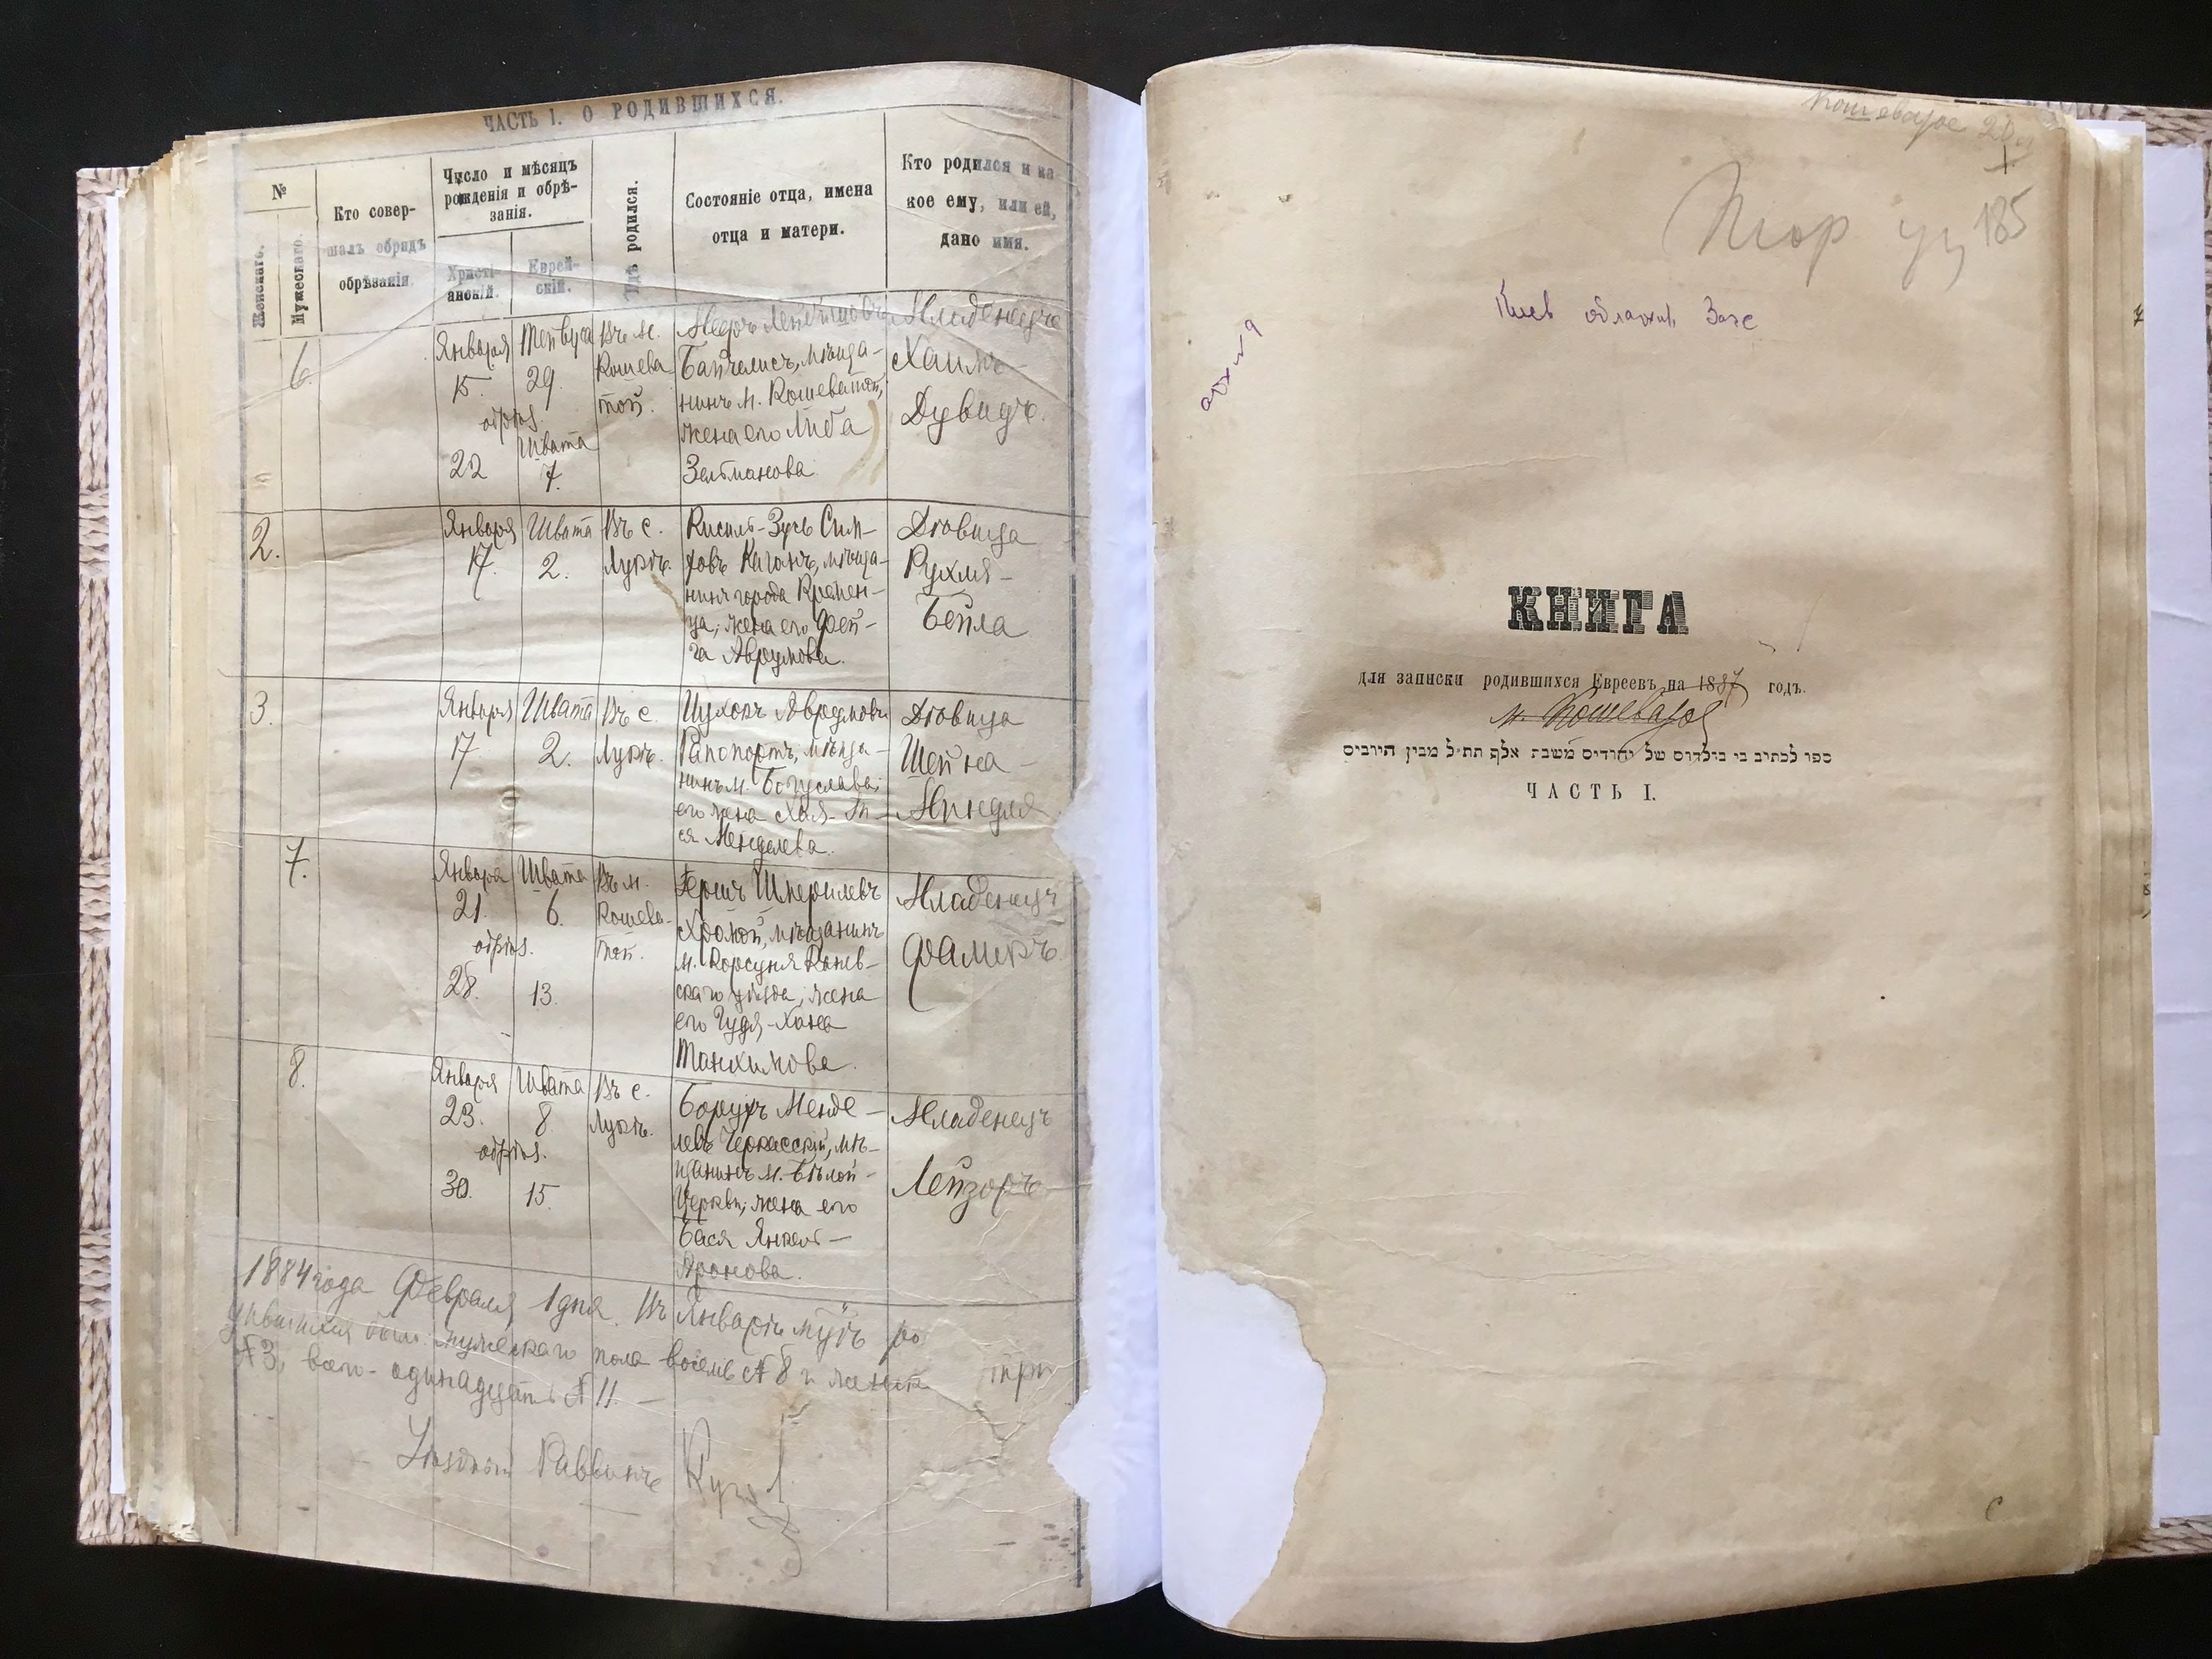 ЧАСТЬ I. О РОДИВШИХСЯ.
№
Женскаго.
Мужескаго.
Кто совер-
шалъ обрядъ
обрѣзанія.
Число и мѣсяцъ
рожденія и обрѣ-
занія.
Христі-
анскій.
Еврей-
скій.
Гдѣ родился.
Состояніе отца, имена
отца и матери.
Кто родился и ка
кое ему, или ей,
дано имя.
6.
Января
15.
обрѣз.
22
Тейвуса
29.
Швата
7.
Въ м.
Кошева
той.
Мееръ
Байгелисъ, мѣща-
нинъ м. Кошеватой,
жена его Либа
Зельманова
Младенецъ
Хаимъ-
Дувидъ.
2.
Января
17.
Швата
2.
Въ с.
Лукѣ.
Кисиль-Зусь Сим-
ховъ Каганъ, мѣща-
нинъ города Кремен-
ца, жена его Фей-
га Аврумова.
Дѣвица
Рухля-
Бейла
3.
Января
17.
Швата
2.
Въ с.
Лукѣ.
Аврумовъ
Рапопортъ, мѣща-
нинъ м. Богуслава;
его жена Хая-
ся Менделева.
Дѣвица
Шейна-
Миндля
7.
Января
21.
обрѣз.
28.
Швата
6.
13.
Въ м.
Кошева-
той.
Гершъ Шмерилевъ
Хромой, мѣщанинъ
м. Корсуня Канев-
скаго уѣзда, жена
его Гудя-Хана
Танхимова.
Младенецъ
Фаликъ
8.
Января
23.
обрѣз.
30.
Швата
8.
15.
Въ с.
Лукѣ.
Борухъ Менде-
левъ Черкасскій, мѣ-
щанинъ м. Бѣлой-
Церкви, жена его
Бася Янкель-
Аронова.
Младенецъ
Лейзоръ
1884 года Февраля 1 дня. Въ Январѣ
мужескаго пола восемь № 8 и три
№ 3, всего одинадцать № 11.
Раввинъ
Кошеватое
185
Киев областн. Загс
КНИГА
для записки родившихся Евреевъ на 1887 годъ.
м. Кошеватой
ספר לכתיב בי בולדוס של יהודיס משבת אלף תת״ל מבין היוביס
ЧАСТЬ I.